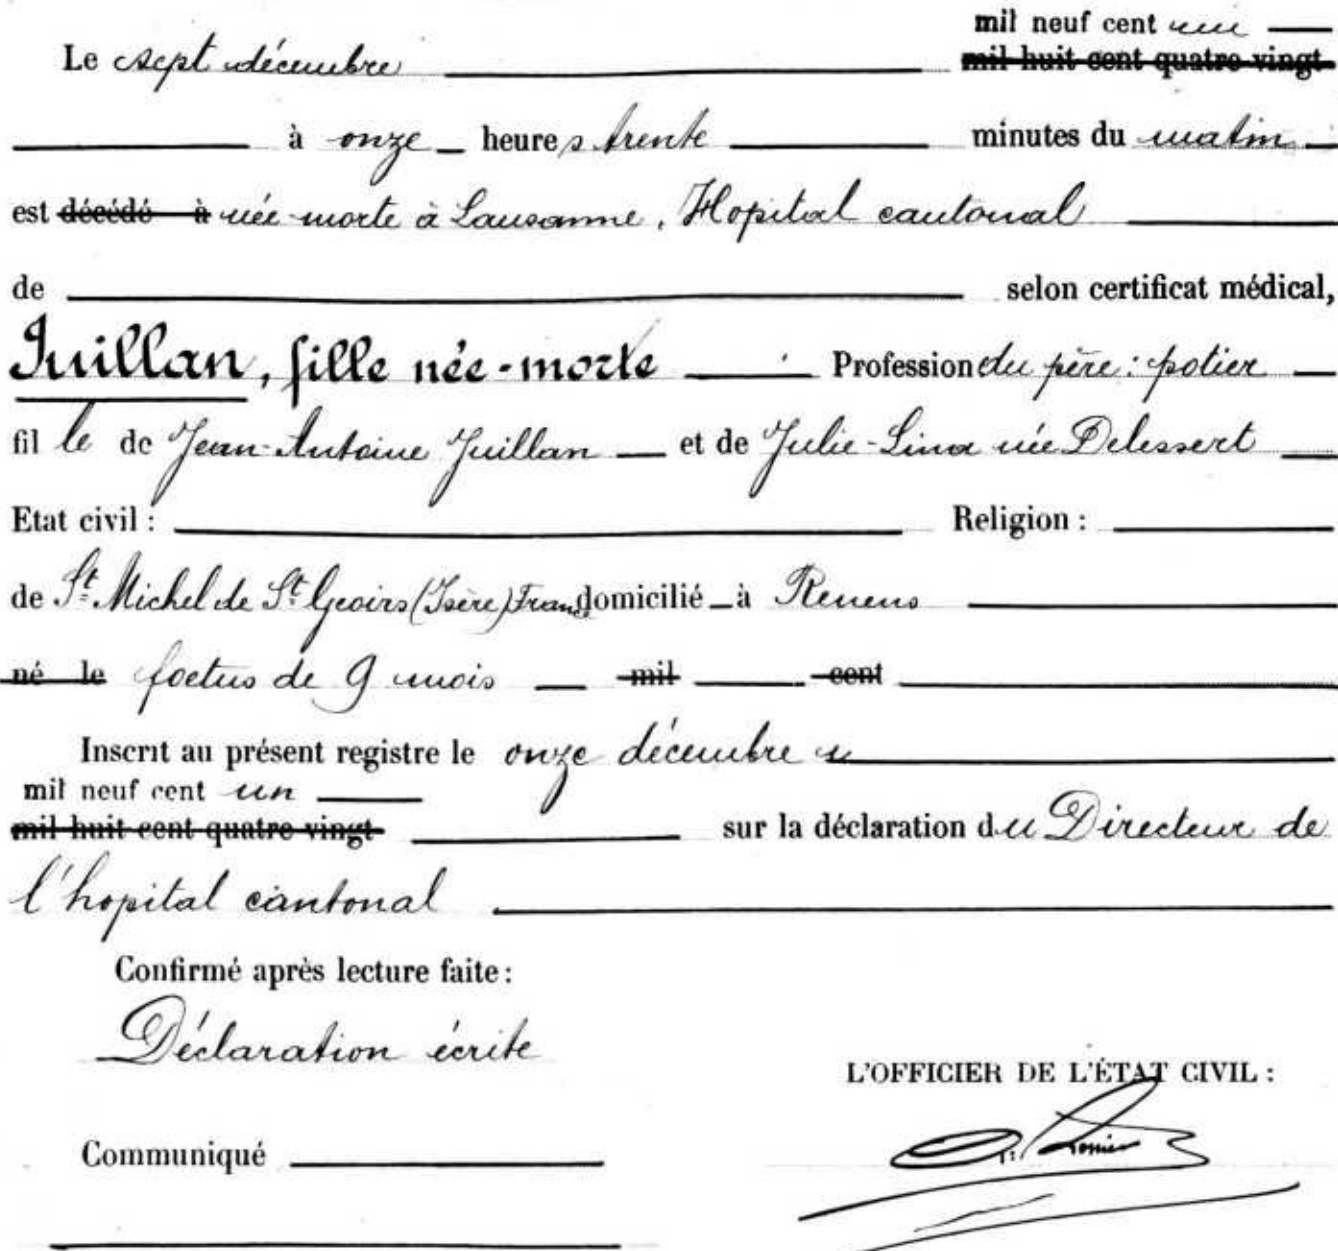 mil neuf cent un
Le sept décembre mil huit cent quatre-vingt
à onze heures trente minutes du matin
est décédé à née-morte à Lausanne, Hopital cantonal
de selon certificat médical,
Juillan, fille née-morte Profession du père: potier
fille de Jean-Antoine Juillan et de Julie-Lina née Delessert
Etat civil: Religion:
de St Michel de St Geoirs (Isère) France domicilié à Renens
né le foetus de 9 mois mil cent
Inscrit au présent registre le onze décembre
mil neuf cent un
mil huit cent quatre-vingt sur la déclaration du Directeur de
l'hopital cantonal
Confirmé après lecture faite:
Déclaration écrite
L'OFFICIER DE L'ÉTAT CIVIL:
Communiqué